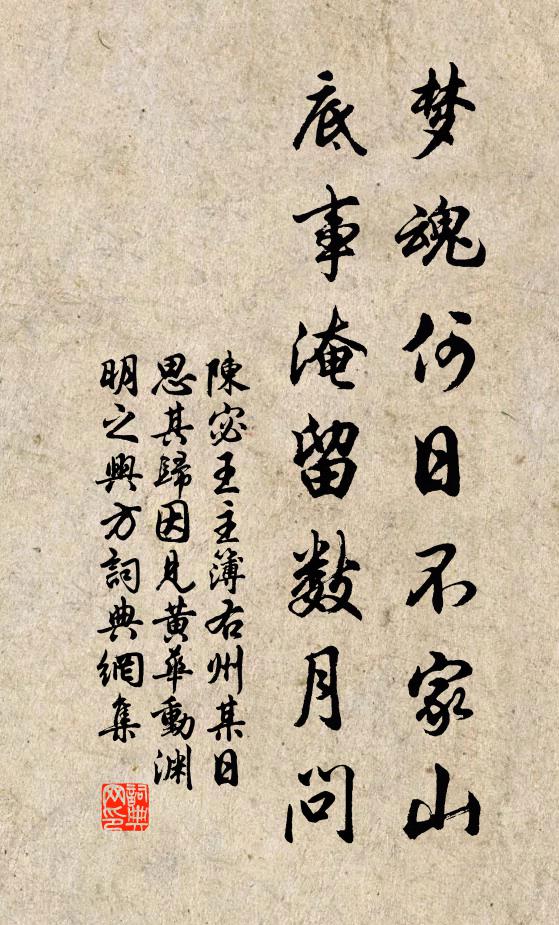 梦魂何日不家山
底事淹留数月问
陳宓王主簿右州某日
思其歸因見黄華動渊
明之興方詞典網集
詞典网印